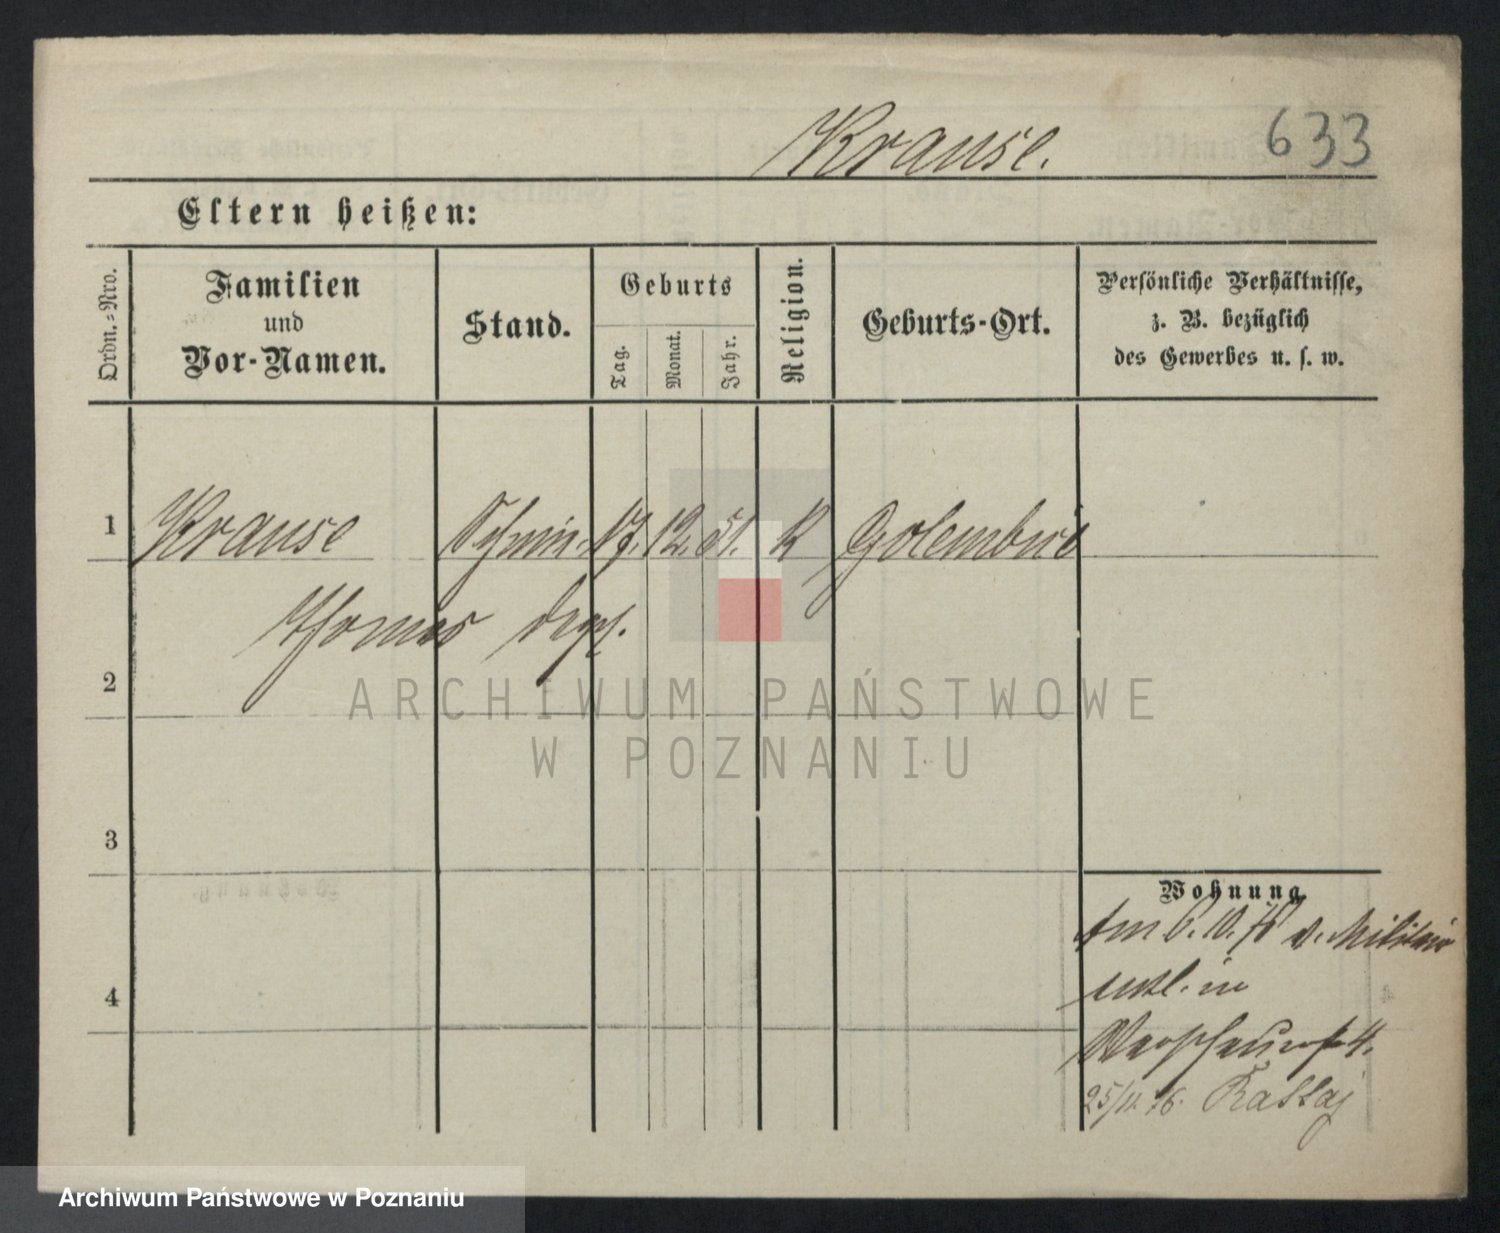 Krause. 633
Eltern heißen:
Ordn.-Nro.
Familien
und
Vor-Namen.
Stand.
Geburts
Tag.
Monat.
Jahr.
Religion.
Geburts-Ort.
Persönliche Verhältnisse,
z. B. bezüglich
des Gewerbes u. s. w.
1 Krause 17. 12. 51. K
Thomas
2
3
4
Wohnung
Am 6. 10. v. Militair
in
25/11. 76.
ARCHIWUM PAŃSTWOWE
W POZNANIU
Archiwum Państwowe w Poznaniu